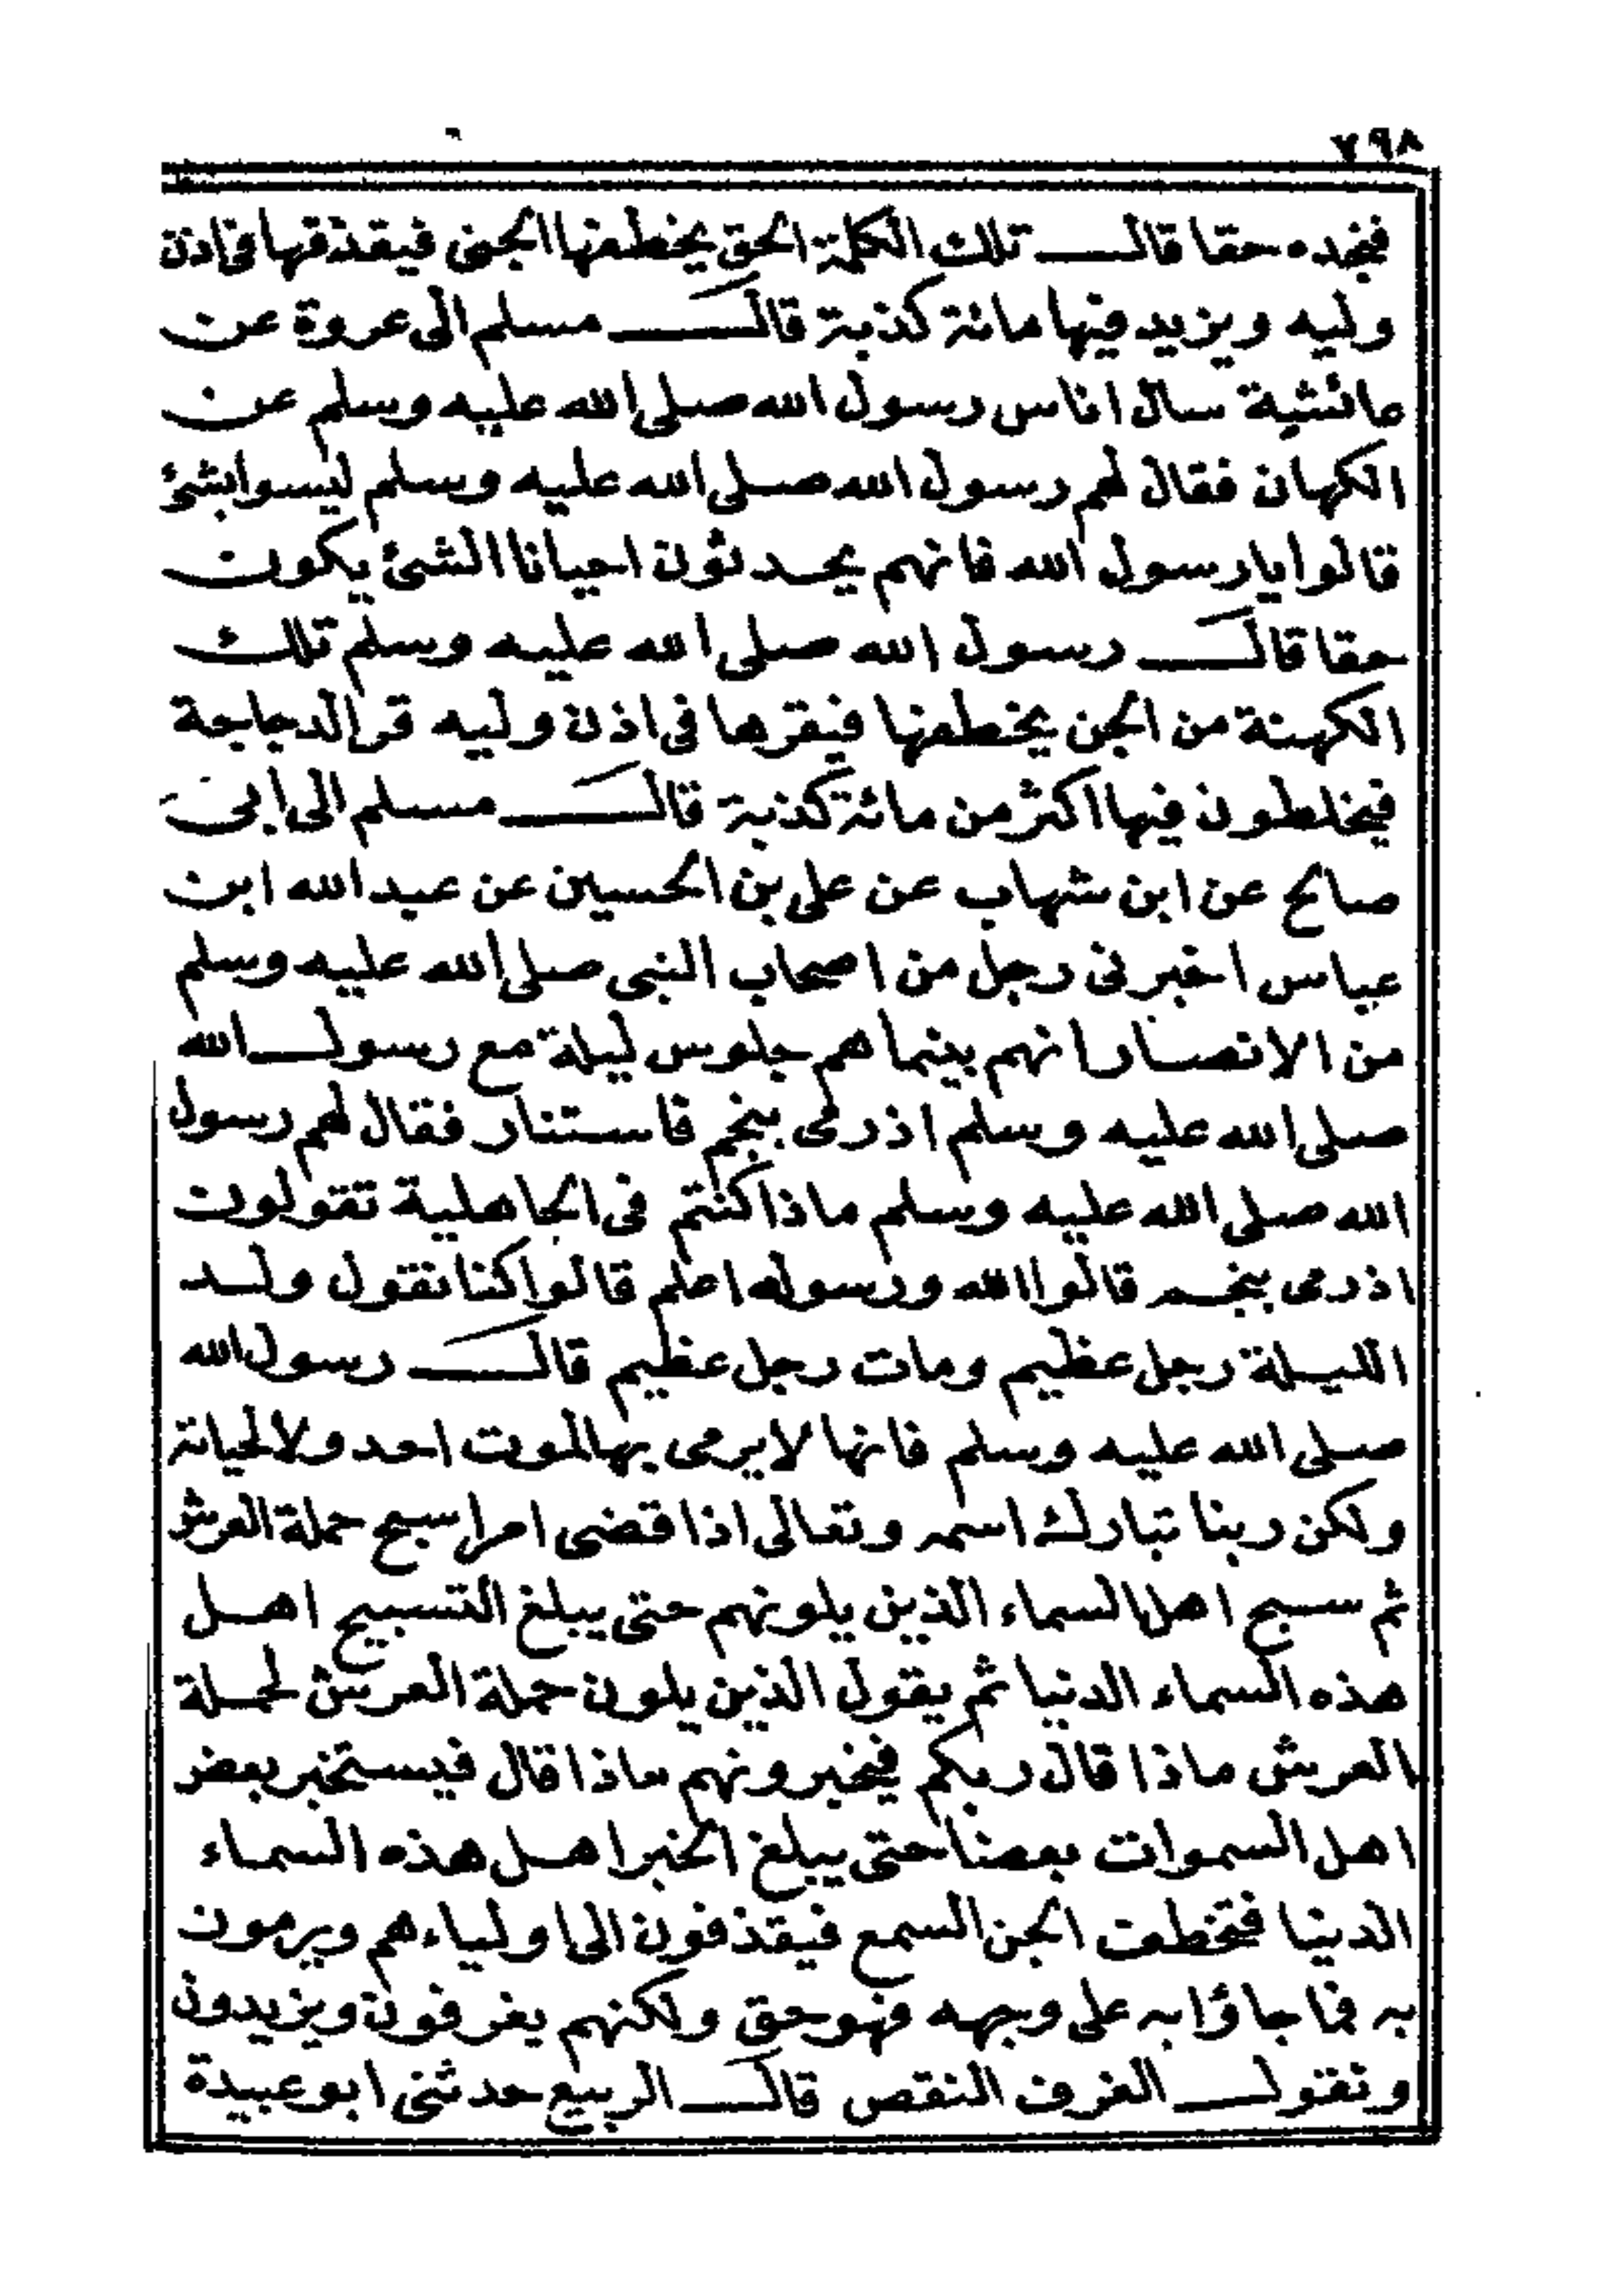 ٧٩٨
فنجده حقا قال تلك الكلمة الحق يخطفها الجن فيقذفها فى اذن
وليه ويزيد فيها مائة كذبة قال مسلم الى عروة عن
عائشة سال اناس رسول الله صلى الله عليه وسلم عن
الكهان فقال لهم رسول الله صلى الله عليه وسلم ليسوا بشئ
قالوا يا رسول الله فانهم يحدثون احيانا الشئ يكون
حقا قال رسول الله صلى الله عليه وسلم تلك
الكهنة من الجن يخطفها فيقرها فى اذن وليه قر الدجاجة
فيخلطون فيها اكثر من مائة كذبة قال مسلم الى ابى
صالح عن ابن شهاب عن على بن الحسين عن عبد الله ابن
عباس اخبرنى رجل من اصحاب النبى صلى الله عليه وسلم
من الانصار انهم بينما هم جلوس ليلة مع رسول الله
صلى الله عليه وسلم اذ رمى بنجم فاستنار فقال لهم رسول
الله صلى الله عليه وسلم ماذا كنتم فى الجاهلية تقولون
اذ رمى بنجم قالوا الله ورسوله اعلم قالوا كنا نقول ولد
الليلة رجل عظيم ومات رجل عظيم قال رسول الله
صلى الله عليه وسلم فانها لا يرمى بها لموت احد ولا لحياته
ولكن ربنا تبارك اسمه وتعالى اذا قضى امرا سبح حملة العرش
ثم سبح اهل السماء الذين يلونهم حتى يبلغ التسبيح اهل
هذه السماء الدنيا ثم يقول الذين يلون حملة العرش لحملة
العرش ماذا قال ربكم فيخبرونهم ماذا قال فيستخبر بعض
اهل السموات بعضا حتى يبلغ الخبر اهل هذه السماء
الدنيا فتخطف الجن السمع فيقذفون الى اولياءهم ويرمون
به فما جاؤا به على وجهه فهو حق ولكنهم يغرفون ويزيدون
ونقول الغرف النقص قال الربيع حدثنى ابو عبيدة